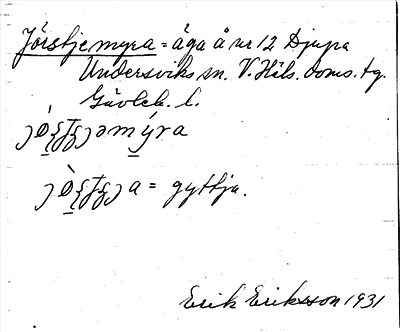 Jörstjemyra = äga å nr 12 Djupa
Undersviks sn. V. Häls. doms. tg.
Gävleb. l.
myra
a = gyttja.
Erik Eriksson 1931